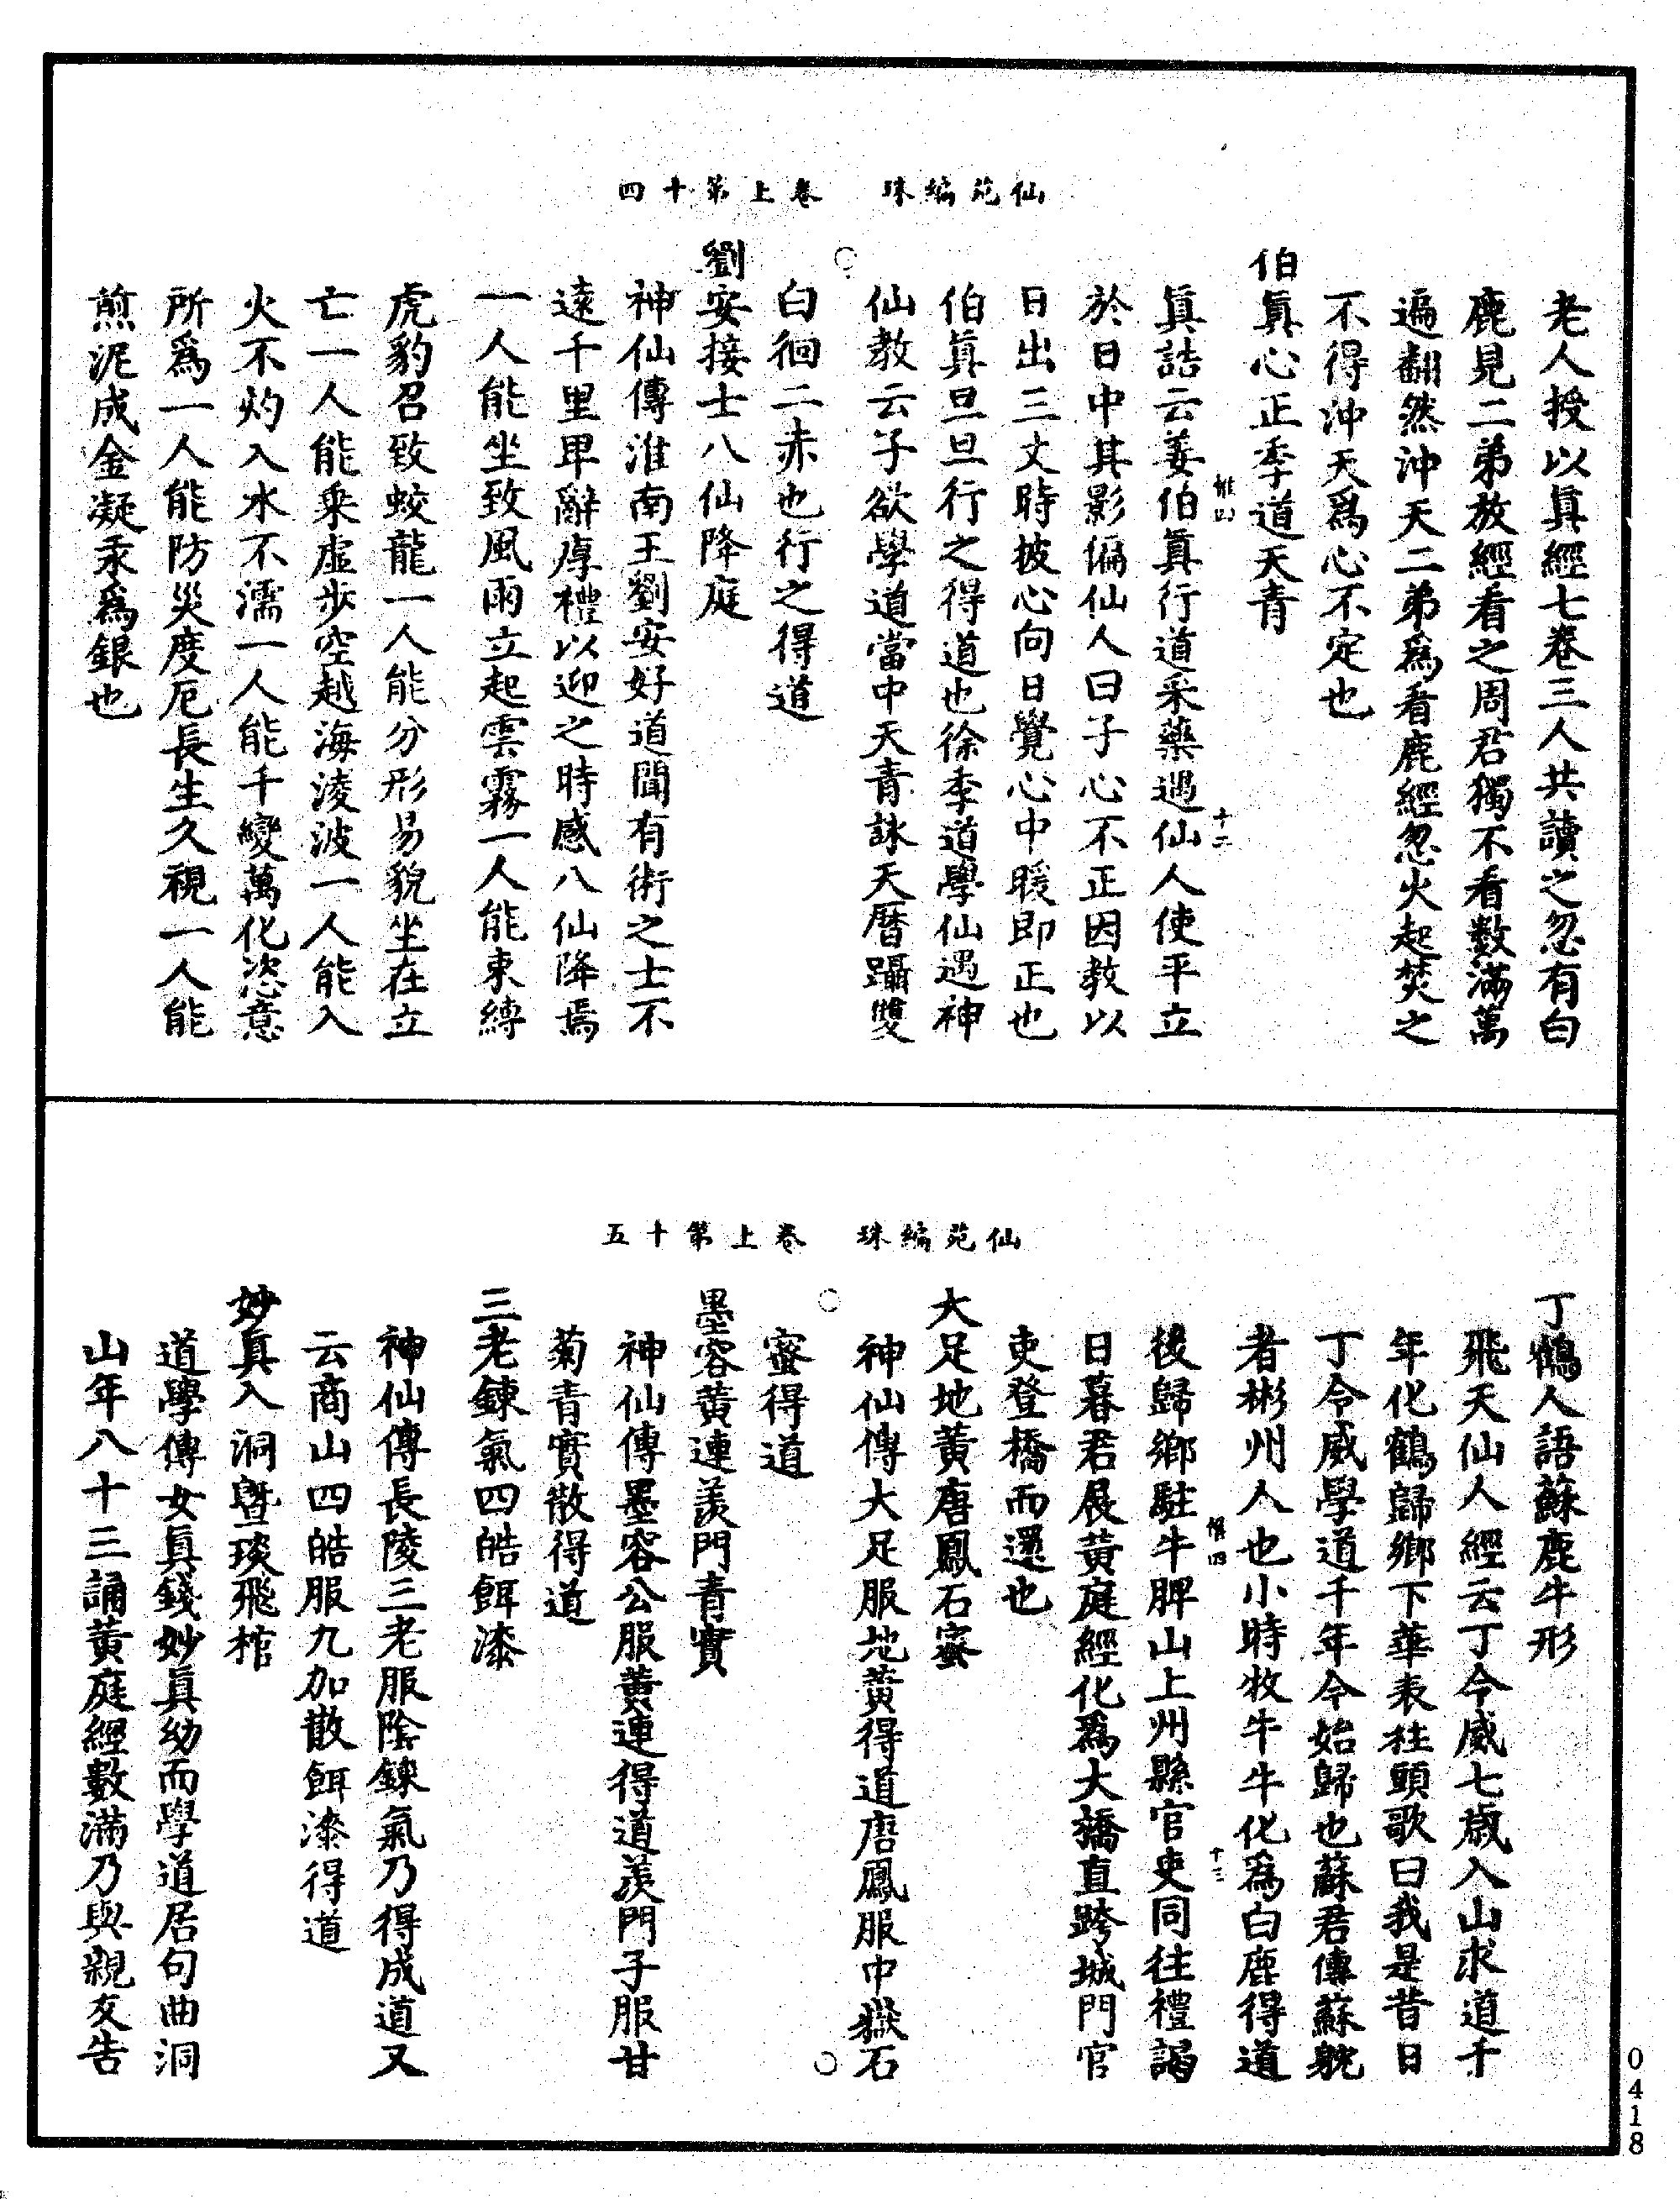 仙苑編珠　卷上第十四
老人授以眞經七卷三人共讀之忽有白
鹿見二弟放經看之周君獨不看數滿萬
遍翻然沖天二弟爲看鹿經忽火起焚之
不得沖天爲心不定也
伯眞心正季道天青
眞誥云姜伯眞行道采藥遇仙人使平立
於日中其影偏仙人曰子心不正因教以
日出三丈時披心向日覺心中暖即正也
伯眞旦旦行之得道也徐季道學仙遇神
仙教云子欲學道當巾天青詠天曆躡雙
白徊二赤也行之得道
劉安接士八仙降庭
神仙傳淮南王劉安好道聞有術之士不
遠千里卑辭厚禮以迎之時感八仙降焉
一人能坐致風雨立起雲霧一人能束縛
虎豹召致蛟龍一人能分形易貌坐在立
亡一人能乘虛步空越海淩波一人能入
火不灼入水不濡一人能千變萬化恣意
所爲一人能防災度厄長生久視一人能
煎泥成金凝汞爲銀也
十二
仙苑編珠　卷上第十五
丁鶴人語蘇鹿牛形
飛天仙人經云丁令威七歲入山求道千
年化鶴歸鄉下華表柱頭歌曰我是昔日
丁令威學道千年今始歸也蘇君傳蘇躭
者彬州人也小時牧牛牛化爲白鹿得道
後歸鄉駐牛脾山上州縣官吏同往禮謁
日暮君展黃庭經化爲大橋直跨城門官
吏登橋而還也
大足地黃唐鳳石蜜
神仙傳大足服地黃得道唐鳳服中嶽石
蜜得道
墨容黃連羨門青實
神仙傳墨容公服黃連得道羨門子服甘
菊青實散得道
三老鍊氣四皓餌漆
神仙傳長陵三老服陰鍊氣乃得成道又
云商山四皓服九加散餌漆得道
妙眞入洞暨琰飛棺
道學傳女眞錢妙眞幼而學道居句曲洞
山年八十三誦黃庭經數滿乃與親友告
十三
0418